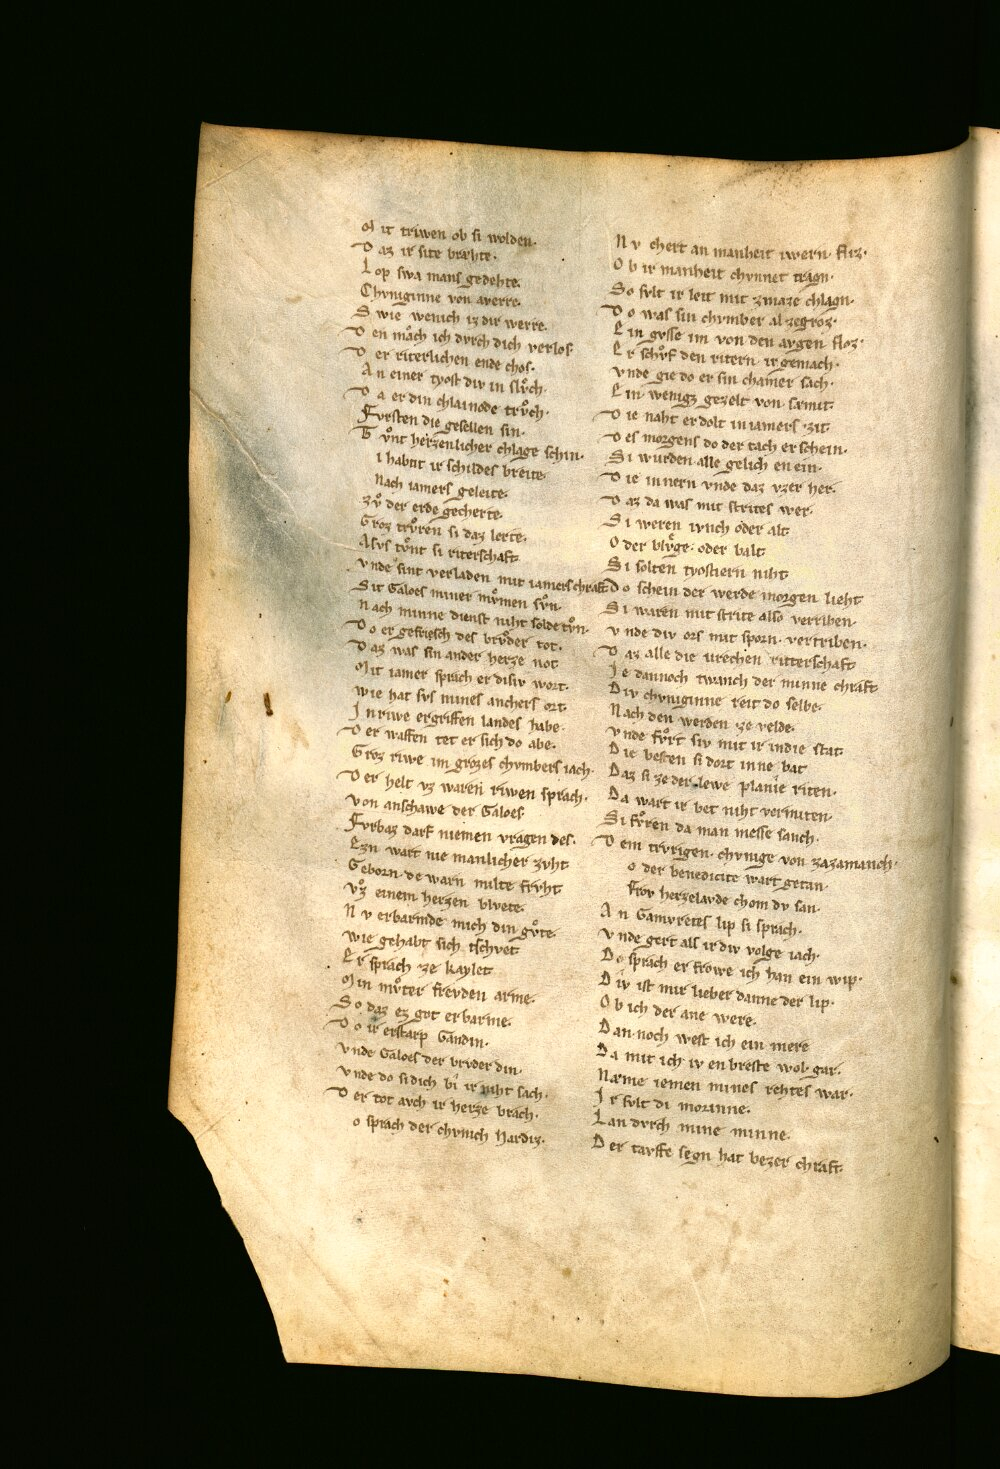 Mit triwen ob si wolden·
Daz ir site bræhte·
Lop swa mans gedehte·
Chvniginne von averre·
Swie wenich iz dir werre·
Den mach ich dvrch dich verlos·
Der riterlichen ende chos·
An einer tyost div in slvͦch·
Da er din chlainode trvͦch·
Fvrsten die gesellen sin·
Tvͦnt herzenlicher chlage schin·
i habnt ir schildes breite·
Nach iamers geleite·
Zvͦ der erde gecherte·
Groz trvͦren si daz lerte·
Alsvs tvͦnt si riterschaft
Vnde sint verladen mit iamers chraft
Sit Galoes miner mvͦmen svͦn·
Nach minne dienst niht solde tvͦn·
Do er gefriesch des brvͦder tot·
Daz was sin ander herze not
Mit iamer sprach er disiv wort·
Wie hat svs mines anchers ort·
In riwe ergriffen landes habe·
Der waffen tet er sich do abe·
Groz riwe im grozes chvmbers iach·
Der helt vz waren riwen sprach·
Von anschawe der Galoes·
Fvrbaz darf niemen vragen des·
Ezn wart nie manlicher zvht
Geborn· de warn milte frvht
Vͦz einem herzen blvete·
Nv erbarmde mich din gvͦte·
Wie gehabt sich tschvet
Er sprach ze kaylet
Min mvͦter frevden arme·
So daz ez got erbarme·
Do ir erstarp Gandin·
Vnde Galoes der brvder din·
Vnde do si dich bi ir niht sach·
Der tot avch ir herze brach·
o sprach der chvnich Hardiz·
Nv chert an manheit iwern fliz·
Ob ir manheit chvnnet tragn·
So svlt ir leit mit zmaze chlagn·
Do was sin chvmber al zegroz·
Ein gvsse im von den avgen floz·
Er schvͦf den ritern ir gemach·
Vnde gie do er sin chamer sach·
Ein wenigz gezelt von samit
Die naht er dolt in iamers zit
Des morgens do der tach erschein·
Si wurden alle gelich en ein·
Die innern vnde daz vzer her·
Daz da was mit strites wer·
Si weren ivnch oder alt
Oder blvͤge· oder balt
Si solten tyostiern niht
Do schein der werde morgen lieht
Si waren mit strite also verriben·
Vnde div ors mit sporn· vertriben·
Daz alle die vrechen ritterschaft
Ie dannoch twanch der minne chraft
Div chvniginne reit do selbe·
Nach den werden ze velde·
Vnde fvͦrt siv mit ir indie stat
Die besten si dort inne bat
Daz si ze der lewe planie riten·
Da wart ir bet niht vermiten·
Si fvͦren da man messe sanch·
Dem trvrigen· chvnige von zazamanch·
o der benedicite wart getan·
frov herzelavde chom dv san·
An Gamvretes lip si sprach·
Vnde gert als ir div volge iach·
Do sprach er frowe ich han ein wip·
Div ist mir lieber danne der lip·
Ob ich der ane were·
Dan noch west ich ein mere
Da mit ich iv en breste wol gar·
Næme iemen mines rehtes war·
Ir svlt di morinne·
Lan dvrch mine minne·
Der tavffe segn hat bezer chraft·